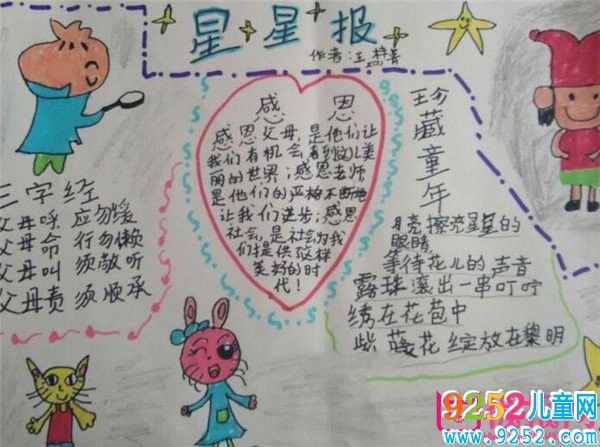 星星报
作者:王梓菁
感恩
感恩父母,是他们让
我们有机会看到这美
丽的世界;感恩老师
是他们的严格不断地
让我们进步;感恩
社会,是社会为我
们提供这样
美好的时
代!
三字经
父母呼 应勿缓
父母命 行勿懒
父母叫 须敬听
父母责 须顺承
珍藏童年
月亮擦亮星星的
眼睛
等待花儿的声音
露珠滚出一串叮咛
绣在花苞中
紫薇花绽放在黎明
9252儿童网
www.9252.com